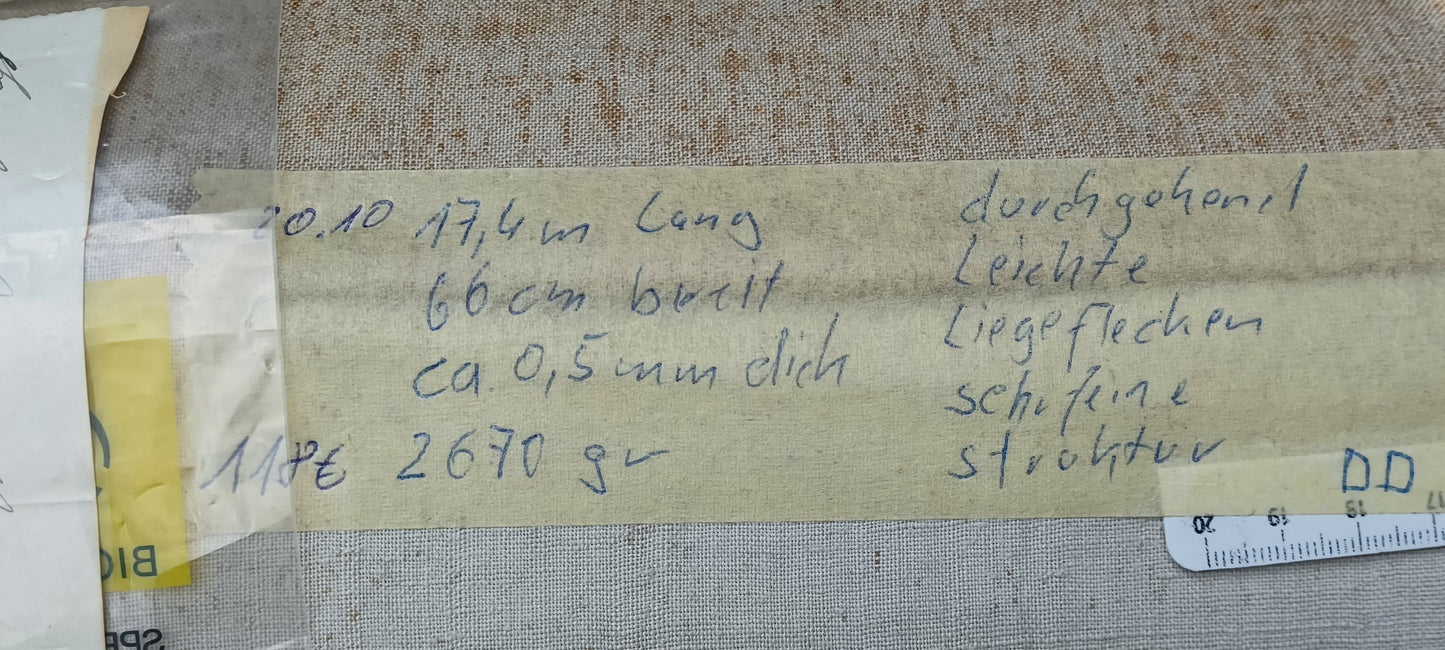 20.10 17,4 m Lang
66 cm breit
ca. 0,5 mm dick
2670 gr
durchgehend
Leichte
Liegeflecken
seh. feine
struktur
DD
20 19 18 17
BIO
SPE